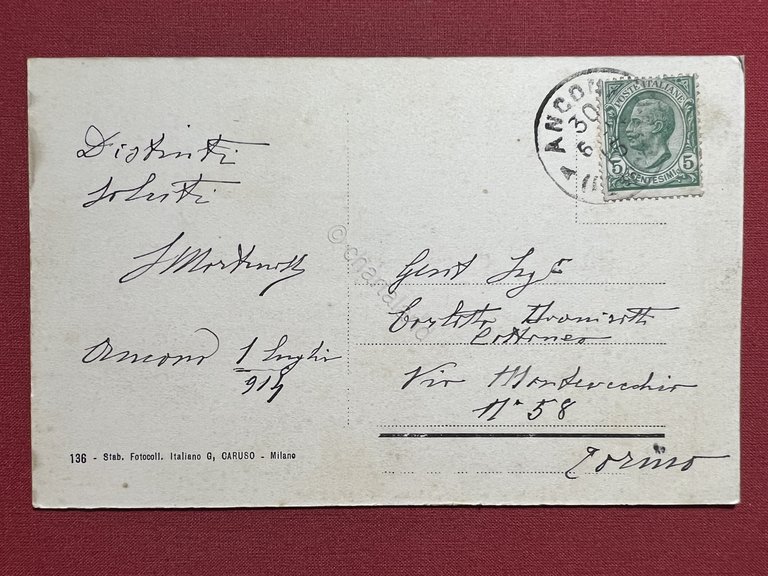 Distinti
saluti
Ancona 1 Luglio
914
136 - Stab. Fotocoll. Italiano G. CARUSO - Milano
ANCONA
30
6
POSTE ITALIANE
5 5
CENTESIMI
© chartaland
Gent Sig.
Carlotta
Cattaneo
Via Montevecchio
N° 58
Torino